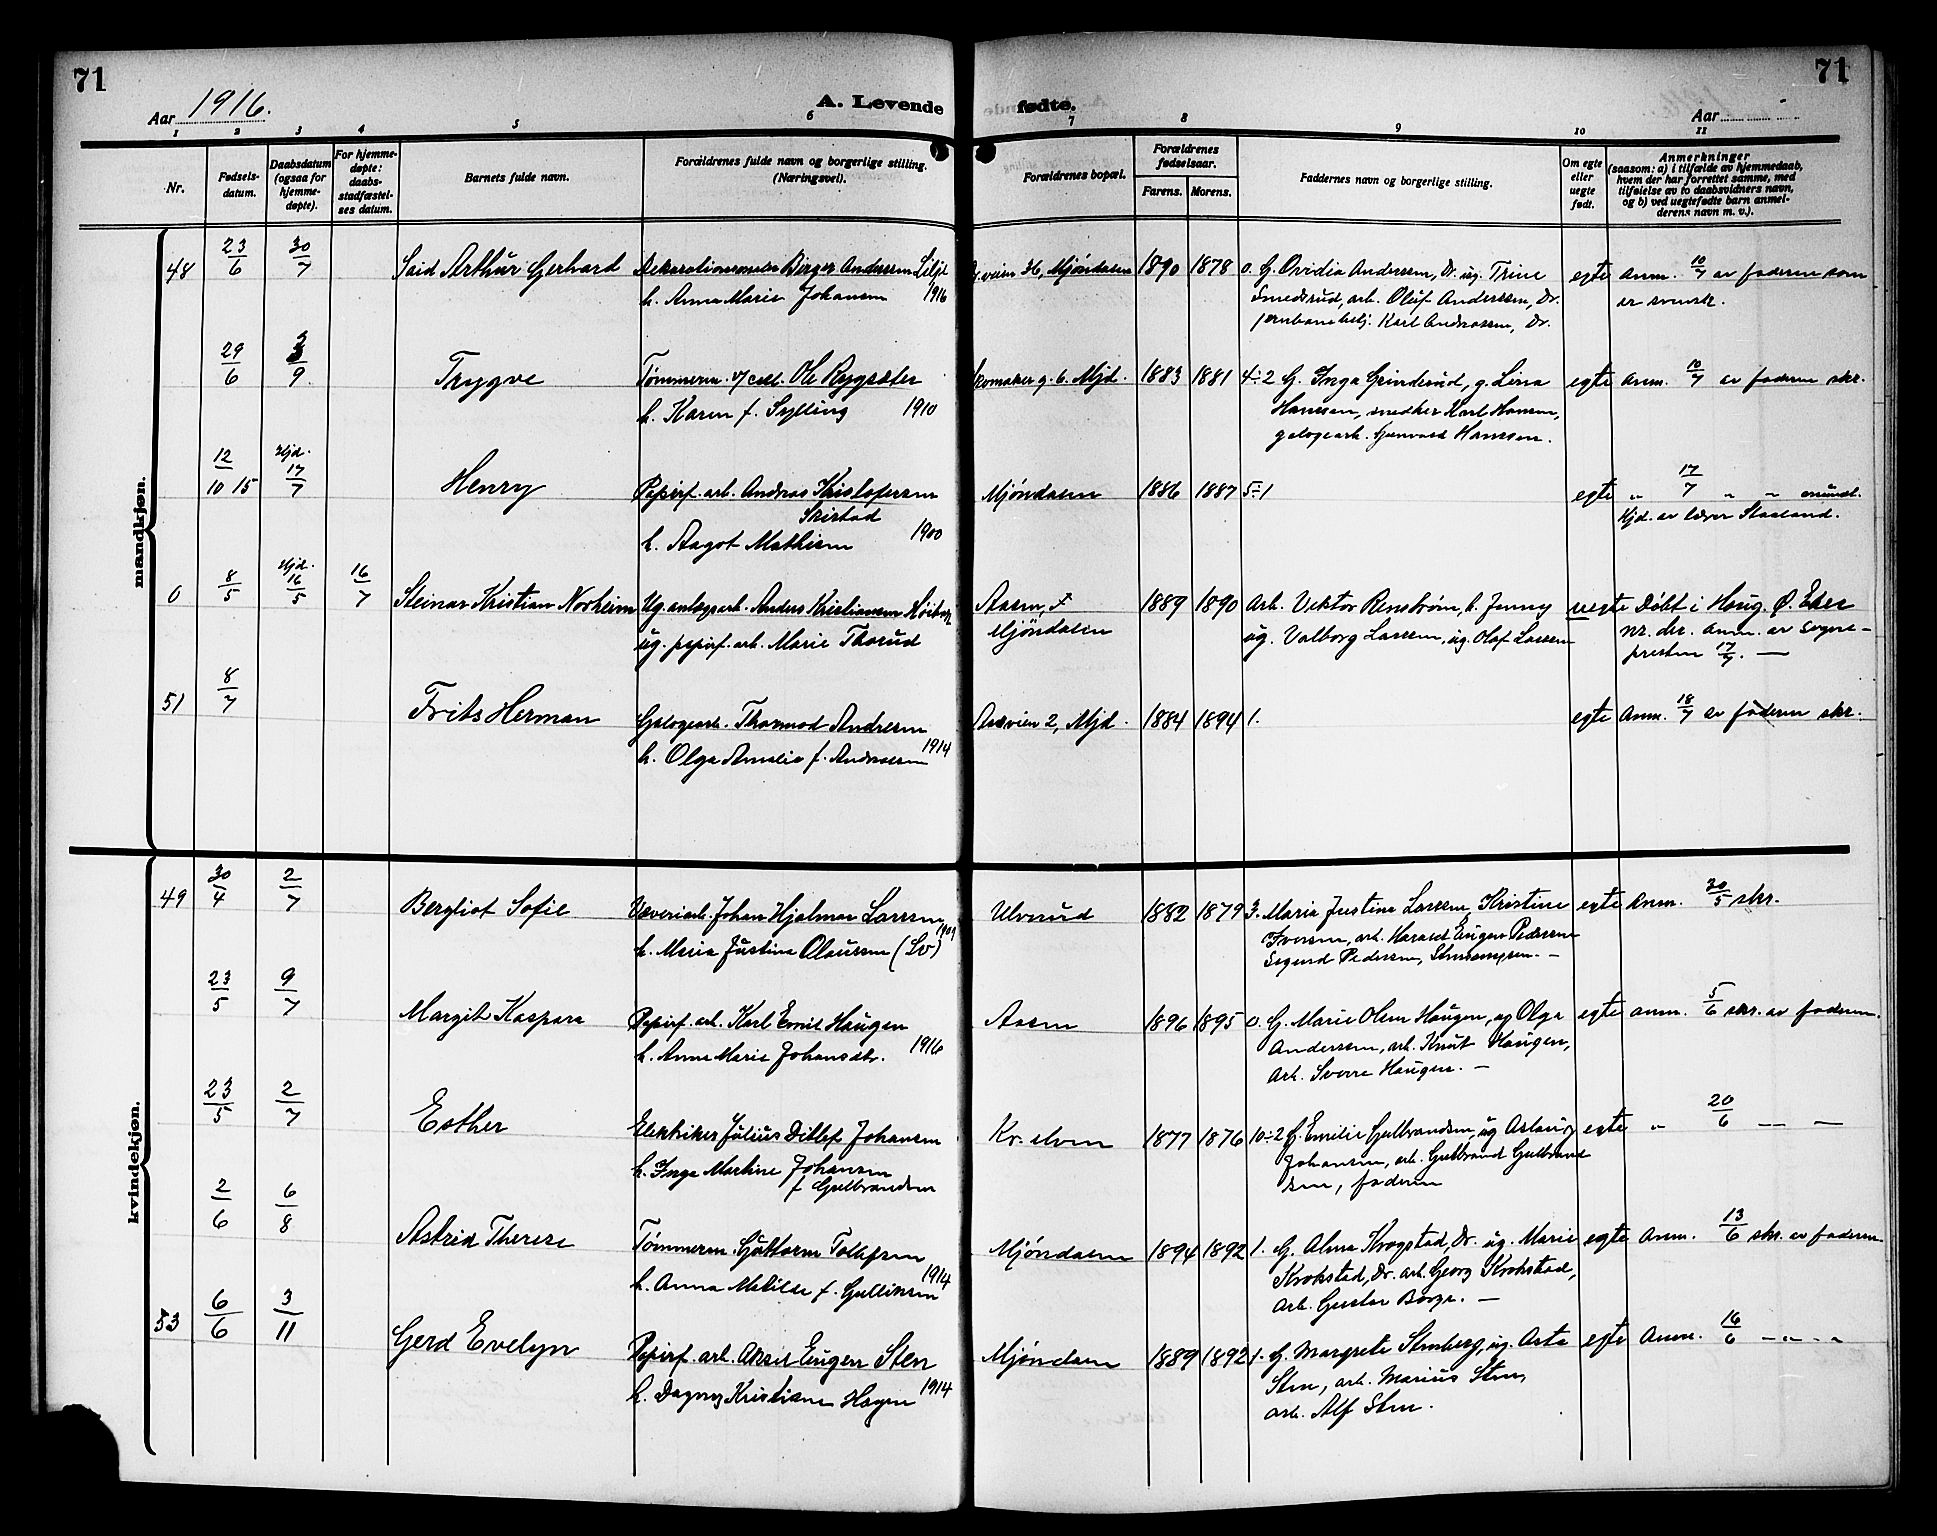 71
71
Aar 1916.
A. Levende
fødte.
Aar
1 2 3 4 5 6 7 8 9 10 11
Nr.
Fødsels-
datum.
Daabsdatum
(ogsaa for
hjemme-
døpte).
For hjemme-
døpte:
daabs-
stadfæstel-
ses datum.
Barnets fulde navn.
Forældrenes fulde navn og borgerlige stilling.
(Næringsvei).
Forældrenes bopæl.
Forældrenes
fødselsaar.
Farens. Morens.
Faddernes navn og borgerlige stilling.
Om egte
eller
uegte
født.
Anmerkninger
(saasom: a) i tilfælde av hjemmedaab,
hvem der har forrettet samme, med
tilføielse av to daabsvidners navn,
og b) ved uegtefødte barn anmel-
derens navn m. v.).
mandkjøn.
48 23/6 30/7 Said Arthur Gerhard
Dekorationsmaler Birger Anderssen Lilje
h. Anna Marie Johansen 1916
veien 36, Mjøndalen 1890 1878
0. G. Ovidia Anderssen, Dr. ug. Trine
Smedsrud, arb. Oluf Anderssen, Dr.
jernbanebetj. Karl Andreassen, Dr.
egte anm. 10/7 av faderen som
er svensk.
29/6 3/9 Trygve
Tømmerm. Ole Rygsæter
h. Karen f. Sylling 1910
g. 6. Mjd. 1883 1881
4÷2 G. Inga Grindsrud, g. Lina
Hanssen, snedker Karl Hansen,
galogearb. Hanssen.
egte anm. 10/7 av faderen skr.
12/10 15 Hjd. 17/7 Henry
Papirf. arb. Andreas Kristofersen
Skistad
h. Aagot Mathisen 1900
Mjøndalen 1886 1887 5÷1
egte „ 17/7 „ „ mundt.
Hjd. av lærer Staaland.
0 8/5 Hjd. 16/5 16/7 Steinar Kristian Norheim
Ug. anlægsarb. Anders Kristiansen
ug. papirf. arb. Marie Thorud
Aasen, f
Mjøndalen
1889 1890
Arb. Viktor Renstrøm, h. Jenny
ug. Valborg Larssen, ug. Olaf Larssen
uegte Døbt i Haug, Ø. Eker
nr. der. Anm. av sogne-
presten 17/7. —
51 8/7 Frits Herman
Galogearb. Thormod Andresen
h. Olga Amalie f. Andreassen 1914
Aasveien 2, Mjd. 1884 1894 1.
egte anm. 18/7 av faderen skr.
kvindekjøn.
49 30/4 2/7 Bergliot Sofie
Væveriarb. Johan Hjalmar Larssen
h. Maria Justina Olaussen (Sv)
Ulverud 1882 1879
3. Maria Justina Larssen, Kristine
Iversen, arb. Harald Eugen Pedersen
Sigurd Pedersen,
egte anm. 30/5 skr.
23/5 9/7 Margit Kaspara
Papirf. arb. Karl Emil Haugen
h. Anna Marie Johansdtr. 1916
Aasen 1896 1895
0. G. Marie Olsen Haugen, ug Olga
Anderssen, arb. Knut Haugen,
Arb. Sverre Haugen. —
egte anm. 5/6 skr. av faderen.
23/5 2/7 Esther
Elektriker Julius Ditlef Johansen
h. Inga Martine Johansen
f Gulbrandsen
Kr. elven 1877 1876
10÷2 G. Emilie Gulbrandsen, ug Aslaug
Johansen, arb. Gulbrand Gulbrand
sen, faderen
egte „ 20/6 — —
2/6 6/8 Astrid Therese
Tømmerm. Guttorm Tollefsen
h. Anna Matilde f. Gulliksen 1914
Mjøndalen 1894 1892
1. G. Alma Krogstad, Dr. ug. Marie
Krokstad, Dr. arb. Georg Krokstad,
arb. Gustav Borge. —
egte anm. 13/6 skr. av faderen
53 6/6 3/11 Gerd Evelyn
Papirf. arb. Aksel Eugen Sten
h. Dagny Kristiane Hagen 1914
Mjøndalen 1889 1892
1. G. Margrete Stenberg, ug. Asta
Sten, arb. Marius Sten,
arb. Alf Sten.
egte anm. 16/6 — „ — „